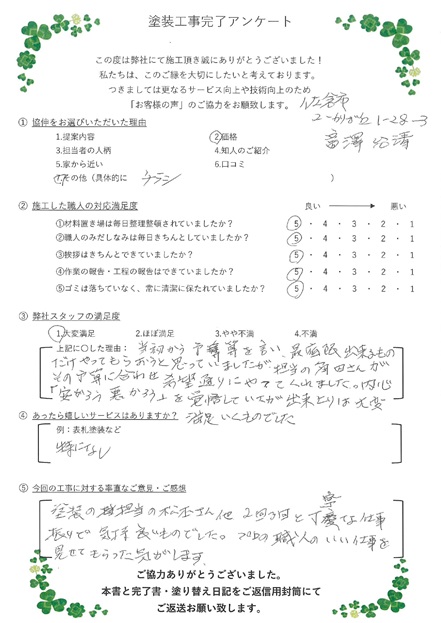 塗装工事完了アンケート
この度は弊社にて施工頂き誠にありがとうございました！
私たちは、このご縁を大切にしたいと考えております。
つきましては更なるサービス向上や技術向上のため
「お客様の声」のご協力をお願い致します。
佐倉市
1-28-3
① 協伸をお選びいただいた理由
1.提案内容 2.価格
3.担当者の人柄 4.知人のご紹介
5.家から近い 6.口コミ
7.その他（具体的に チラシ ）
② 施工した職人の対応満足度 良い 悪い
①材料置き場は毎日整理整頓されていましたか？ 5 ・ 4 ・ 3 ・ 2 ・ 1
②職人のみだしなみは毎日きちんとしていましたか？ 5 ・ 4 ・ 3 ・ 2 ・ 1
③挨拶はきちんとできていましたか？ 5 ・ 4 ・ 3 ・ 2 ・ 1
④作業の報告・工程の報告はできていましたか？ 5 ・ 4 ・ 3 ・ 2 ・ 1
⑤ゴミは落ちていなく、常に清潔に保たれていましたか？ 5 ・ 4 ・ 3 ・ 2 ・ 1
③ 弊社スタッフの満足度
1.大変満足 2.ほぼ満足 3.やや不満 4.不満
上記に○した理由： 当初から予算等を言い、最低限出来るもの
だけやってもらおうと思っていましたが担当の 田さんが
その予算に合わせ希望通りにやってくれました。内心
「安かろう悪かろう」を覚悟していたが出来上りは大変
満足いくものでした
④ あったら嬉しいサービスはありますか？
例：表札塗装など
特になし
⑤ 今回の工事に対する率直なご意見・ご感想
塗装の担当の松本さん他2回3回と丁寧な仕事
振りで気持良いものでした。プロの職人のいい仕事を
見せてもらった気がします。
ご協力ありがとうございました。
本書と完了書・塗り替え日記をご返信用封筒にて
ご返送お願い致します。